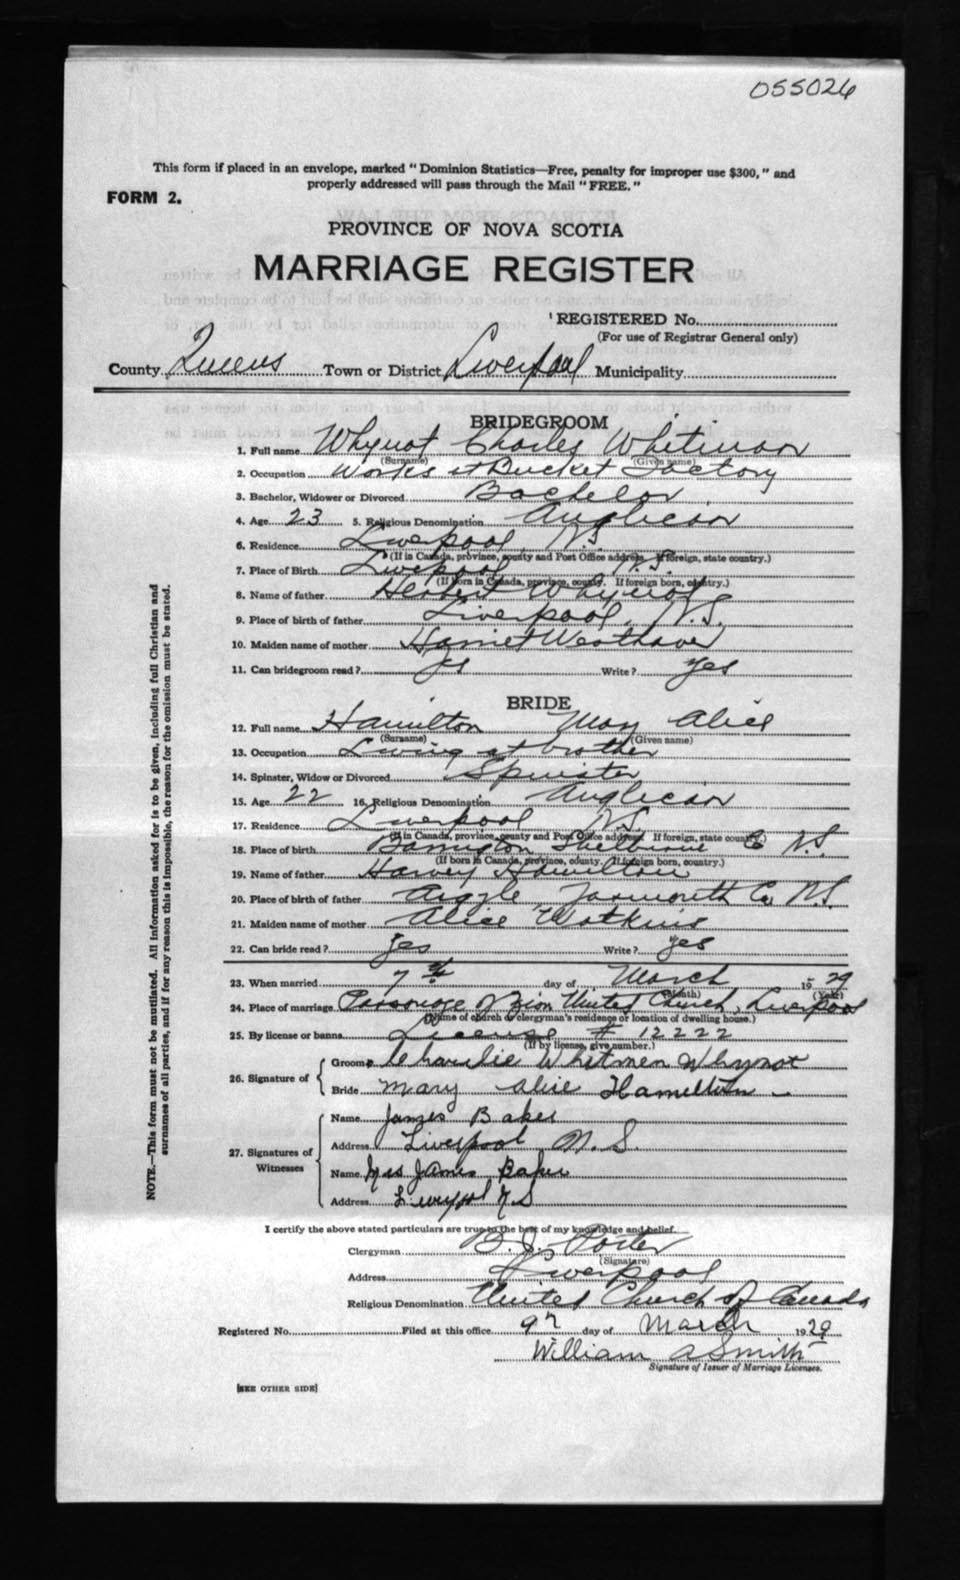 055026
This form if placed in an envelope, marked "Dominion Statistics—Free, penalty for improper use $300," and
properly addressed will pass through the Mail "FREE."
FORM 2.
PROVINCE OF NOVA SCOTIA
MARRIAGE REGISTER
REGISTERED No.
(For use of Registrar General only)
County Queens Town or District Liverpool Municipality
BRIDEGROOM
1. Full name Whynot Charles Whitman
(Surname) (Given name)
2. Occupation Works at Bucket Factory
3. Bachelor, Widower or Divorced Bachelor
4. Age 23 5. Religious Denomination Anglican
6. Residence Liverpool, N.S.
(If in Canada, province, county and Post Office address. If foreign, state country.)
7. Place of Birth Liverpool N.S.
(If born in Canada, province, county. If foreign born, country.)
8. Name of father Herbert Whynot
9. Place of birth of father Liverpool, N.S.
10. Maiden name of mother Harriet Westhaver
11. Can bridegroom read? yes Write? yes
BRIDE
12. Full name Hamilton May Alice
(Surname) (Given name)
13. Occupation Living at brother
14. Spinster, Widow or Divorced Spinster
15. Age 22 16. Religious Denomination Anglican
17. Residence Liverpool N.S.
(If in Canada, province, county and Post Office address. If foreign, state country.)
18. Place of birth Barrington Shelburne Co N.S.
(If born in Canada, province, county. If foreign born, country.)
19. Name of father Harvey Hamilton
20. Place of birth of father Argyle Yarmouth Co. N.S.
21. Maiden name of mother Alice Watkins
22. Can bride read? yes Write? yes
23. When married 7th day of March 1929
(Month) (Year)
24. Place of marriage Parsonage of Zion United Church, Liverpool
(Name of church or clergyman's residence or location of dwelling house.)
25. By license or banns License # 12222
(If by license, give number.)
26. Signature of Groom Charlie Whitmen Whynot
Bride Mary Alice Hamilton
27. Signatures of Witnesses Name James Baker
Address Liverpool N.S.
Name Mrs James Baker
Address Liverpool N S
I certify the above stated particulars are true to the best of my knowledge and belief.
Clergyman B. J. Porter
(Signature)
Address Liverpool
Religious Denomination United Church of Canada
Registered No. Filed at this office 9th day of March 1929
William A Smith
Signature of Issuer of Marriage Licenses.
[SEE OTHER SIDE]
NOTE.—This form must not be mutilated. All information asked for is to be given, including full Christian and
surnames of all parties, and if for any reason this is impossible, the reason for the omission must be stated.